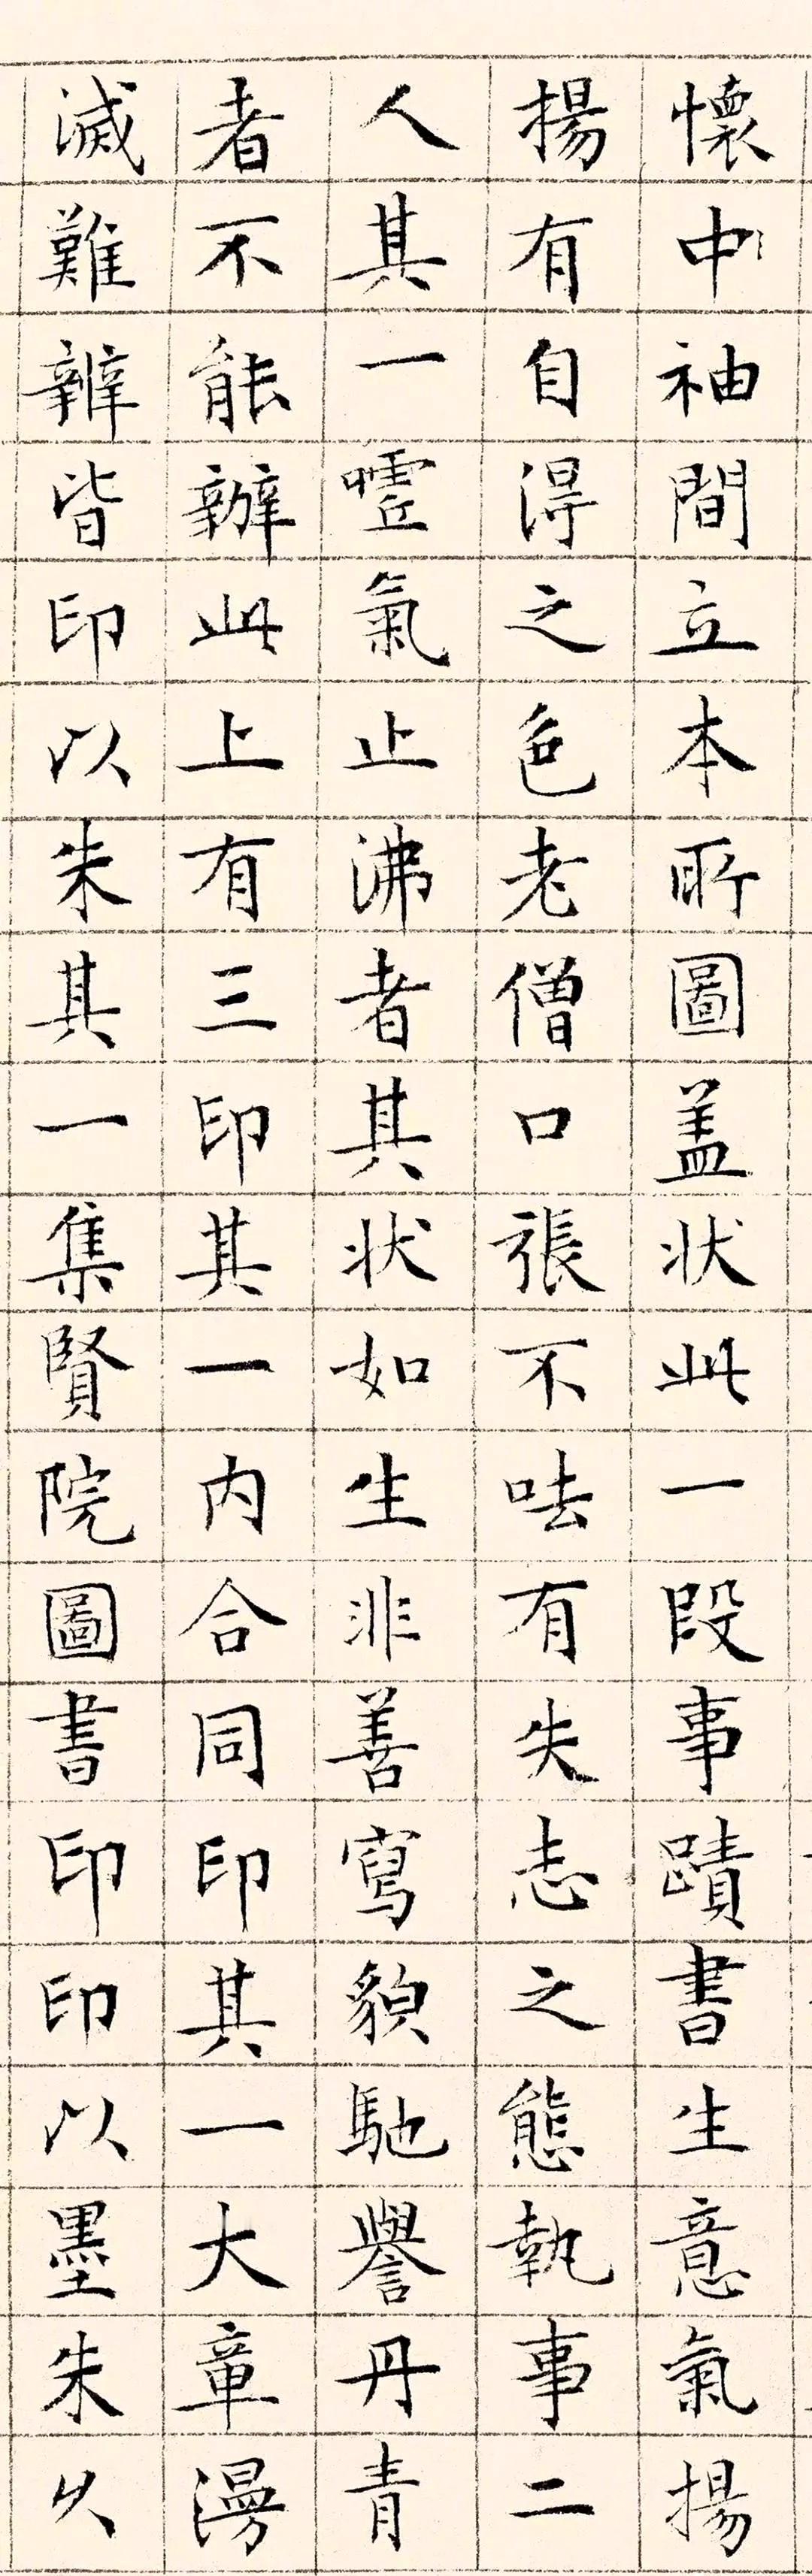 懷中袖間立本所圖盖狀此一段事蹟書生意氣揚
揚有自得之色老僧口張不呿有失志之態執事二
人其一嘘氣止沸者其狀如生非善寫貌馳譽丹青
者不能辦此上有三印其一内合同印其一大章漫
滅難辨皆印以朱其一集賢院圖書印印以墨朱久